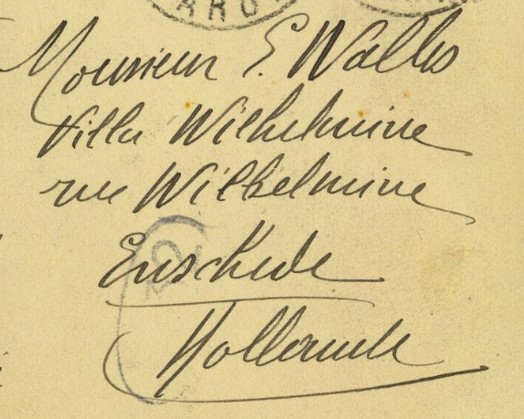 Monsieur E. Wallis
Villa Wilhelmine
rue Wilhelmine
Enschede
Hollande